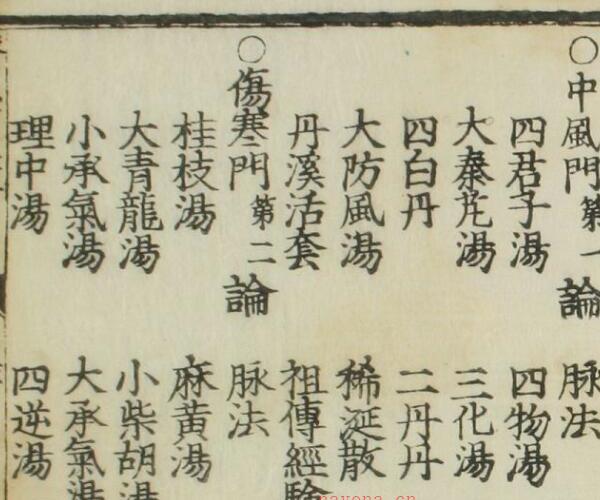 ○中風門第一論 脉法
四君子湯 四物湯
大秦芃湯 三化湯
四白丹 二丹丹
大防風湯 稀涎散
丹溪活套 祖傳經驗
○傷寒門第二論 脉法
桂枝湯 麻黄湯
大青龍湯 小柴胡湯
小承氣湯 大承氣湯
理中湯 四逆湯